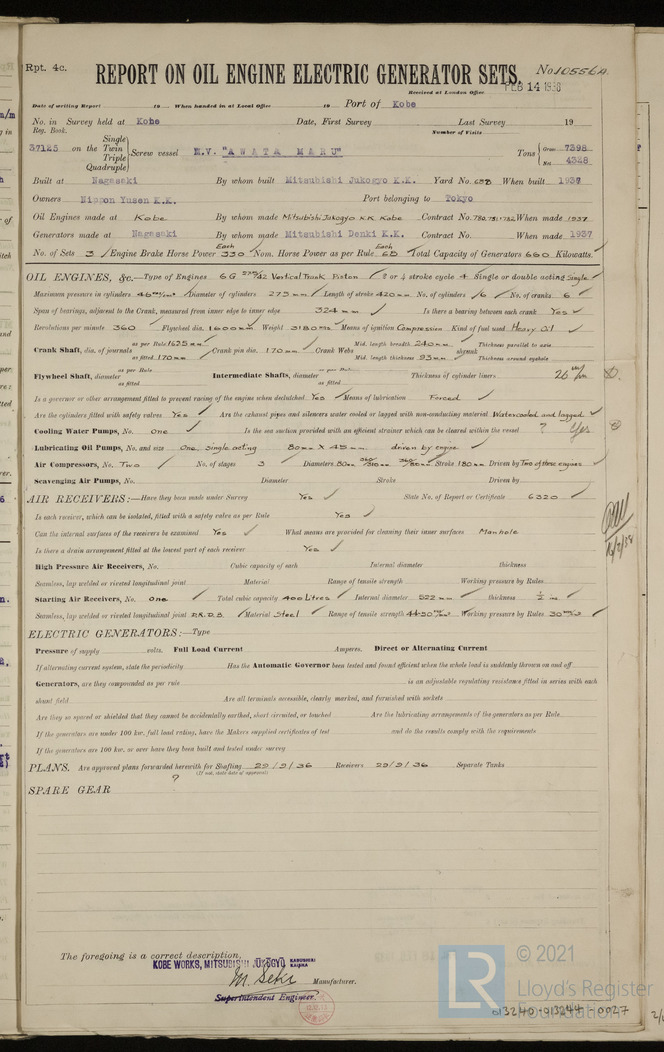 Rpt. 4c.
REPORT ON OIL ENGINE ELECTRIC GENERATOR SETS.
No. 10556A
Received at London Office FEB 14 1938
Date of writing Report 19 When handed in at Local Office 19 Port of Kobe
No. in Survey held at Kobe Date, First Survey Last Survey 19
Reg. Book. Number of Visits
37125 on the Single Twin Triple Quadruple Screw vessel M.V. "AWATA MARU" Tons Gross 7398 Net 4328
Built at Nagasaki By whom built Mitsubishi Jukogyo K.K. Yard No. 653 When built 1937
Owners Nippon Yusen K.K. Port belonging to Tokyo
Oil Engines made at Kobe By whom made Mitsubishi Jukogyo KK Kobe Contract No. 780,781,782 When made 1937
Generators made at Nagasaki By whom made Mitsubishi Denki K.K. Contract No. When made 1937
No. of Sets 3 Engine Brake Horse Power Each 330 Nom. Horse Power as per Rule Each 68 Total Capacity of Generators 660 Kilowatts.
OIL ENGINES, &c.—Type of Engines 6G /42 Vertical Trunk Piston 2 or 4 stroke cycle 4 Single or double acting Single
Maximum pressure in cylinders 46 Diameter of cylinders 275 mm Length of stroke 420 mm No. of cylinders 6 No. of cranks 6
Span of bearings, adjacent to the Crank, measured from inner edge to inner edge 324 mm Is there a bearing between each crank Yes
Revolutions per minute 360 Flywheel dia. 1600 mm Weight 3180 Means of ignition Compression Kind of fuel used Heavy Oil
Crank Shaft, dia. of journals as per Rule 162.5 mm as fitted 170 mm Crank pin dia. 170 mm Crank Webs Mid. length breadth 240 mm Mid. length thickness 93 mm shrunk Thickness parallel to axis Thickness around eyehole
Flywheel Shaft, diameter as per Rule as fitted Intermediate Shafts, diameter as per Rule as fitted Thickness of cylinder liners 26 m/m
Is a governor or other arrangement fitted to prevent racing of the engine when declutched Yes Means of lubrication Forced
Are the cylinders fitted with safety valves Yes Are the exhaust pipes and silencers water cooled or lagged with non-conducting material Watercooled and lagged
Cooling Water Pumps, No. One Is the sea suction provided with an efficient strainer which can be cleared within the vessel ? Yes
Lubricating Oil Pumps, No. and size One, single acting 80 mm X 45 mm driven by engine
Air Compressors, No. Two No. of stages 3 Diameters Stroke 180 mm Driven by Two of three engines
Scavenging Air Pumps, No. Diameter Stroke Driven by
AIR RECEIVERS:—Have they been made under Survey Yes State No. of Report or Certificate 6320
Is each receiver, which can be isolated, fitted with a safety valve as per Rule Yes
Can the internal surfaces of the receivers be examined Yes What means are provided for cleaning their inner surfaces Manhole
Is there a drain arrangement fitted at the lowest part of each receiver Yes
High Pressure Air Receivers, No. Cubic capacity of each Internal diameter thickness
Seamless, lap welded or riveted longitudinal joint Material Range of tensile strength Working pressure by Rules
Starting Air Receivers, No. One Total cubic capacity 400 Litres Internal diameter 522 mm thickness 1/2 in
Seamless, lap welded or riveted longitudinal joint D.R.D.B. Material Steel Range of tensile strength Working pressure by Rules 30
ELECTRIC GENERATORS:—Type
Pressure of supply volts. Full Load Current Amperes. Direct or Alternating Current
If alternating current system, state the periodicity Has the Automatic Governor been tested and found efficient when the whole load is suddenly thrown on and off
Generators, are they compounded as per rule is an adjustable regulating resistance fitted in series with each
shunt field Are all terminals accessible, clearly marked, and furnished with sockets
Are they so spaced or shielded that they cannot be accidentally earthed, short circuited, or touched Are the lubricating arrangements of the generators as per Rule
If the generators are under 100 kw. full load rating, have the Makers supplied certificates of test and do the results comply with the requirements
If the generators are 100 kw. or over have they been built and tested under survey
PLANS. Are approved plans forwarded herewith for Shafting 29/9/36 Receivers 29/9/36 Separate Tanks
(If not, state date of approval)
?
SPARE GEAR
The foregoing is a correct description,
KOBE WORKS, MITSUBISHI JUKOGYO KABUSHIKI KAISHA
M. Seki Manufacturer.
Superintendent Engineer.
LR © 2021
Lloyd's Register
Foundation
013240-013244-0027